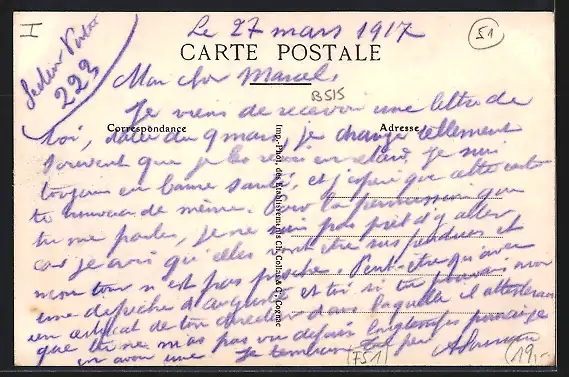 I
Le 27 mars 1917
51
Secteur Postal
223
CARTE POSTALE
Mon cher Marcel,
B515
Je viens de recevoir une lettre de
toi, datée du 9 mars, je change tellement
Correspondance
Adresse
souvent que je les reçois en retard. Je suis
toujours en bonne santé, et j'espère que cette carte
te trouvera de même. Pour la permission que
tu me parles, je ne suis pas prêt d'y aller
car je crois qu'elles vont être suspendues et
mon tour n'est pas proche. Peut-être qu'avec
une dépêche et toi si tu pouvais avoir
un certificat de ton directeur dans laquelle il attesterait
que tu ne m'as pas vu depuis longtemps pourrais-je
en avoir une. Je
Imp.-Phot. des Etablissements Ch. Collas & Cie, Cognac
F51
19,-